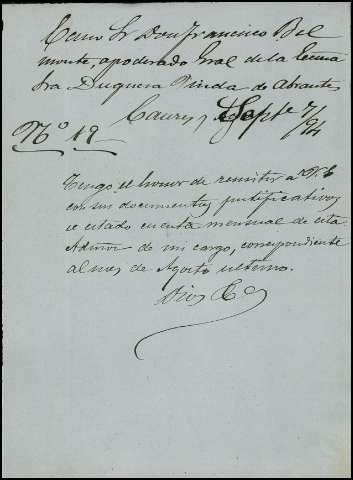 Excmo Sr Don Francisco Bel
monte, apoderado Gral de la Excma
Sra Duquesa Viuda de Abrantes
Caures, Sepbre 7/94
No 18
Tengo el honor de remitir a V.E.
con sus documentos justificativos
el estado cuenta mensual de esta
Admon de mi cargo, correspondiente
al mes de Agosto ultimo.
Dios &